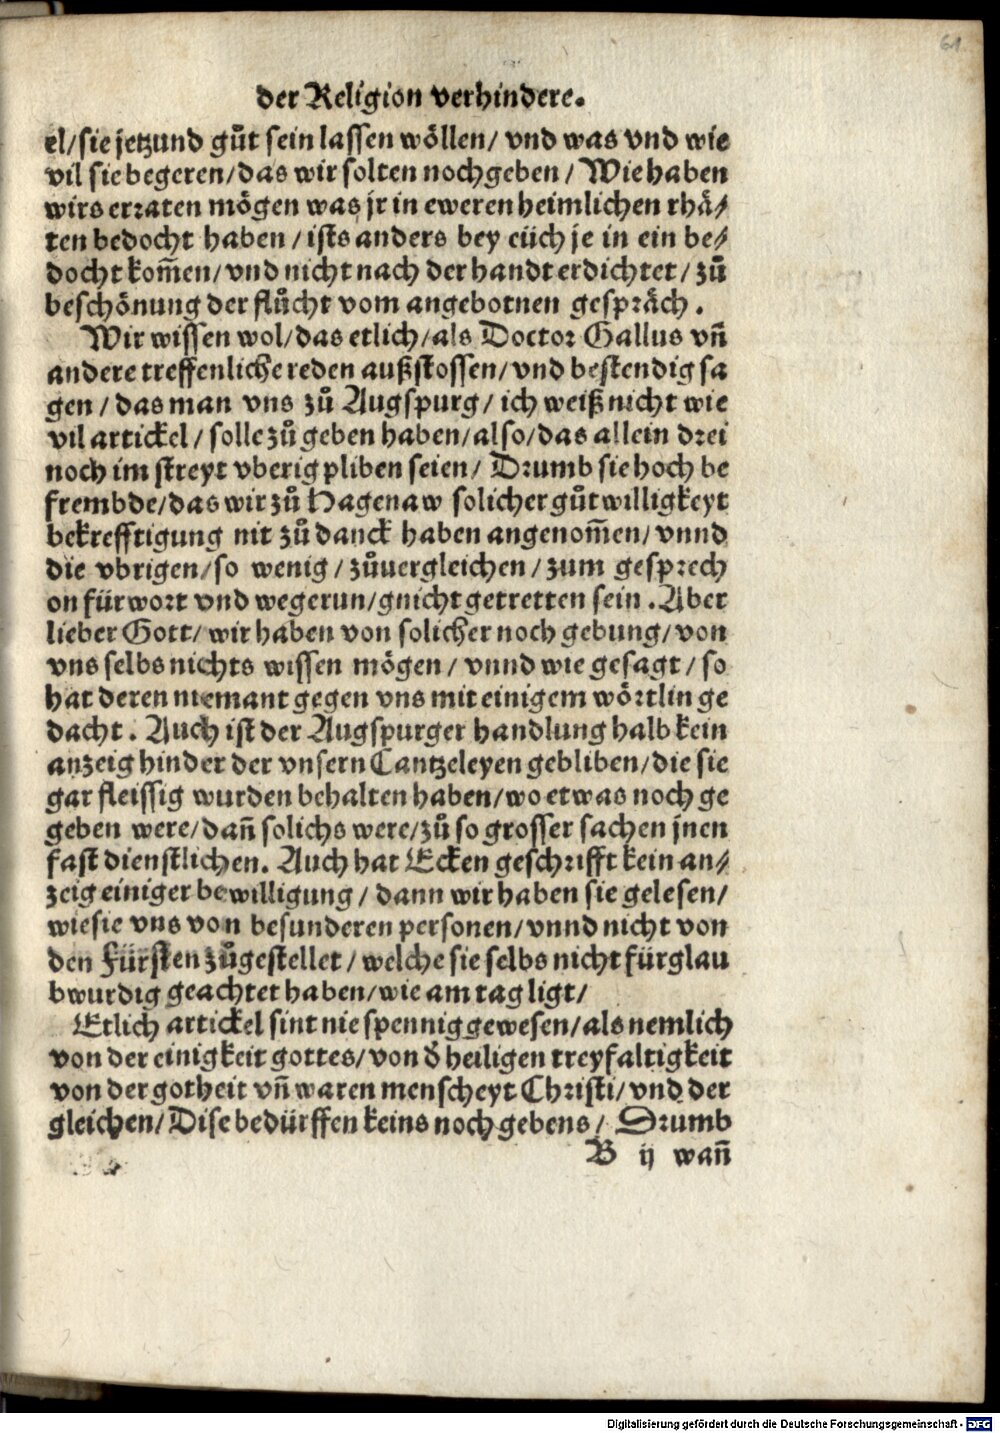 61
der Religion verhindere.
el/sie jetzund gůt sein lassen wöllen/ vnd was vnd wie
vil sie begeren/das wir solten nochgeben / Wie haben
wirs erraten mögen was jr in eweren heimlichen rhä⸗
ten bedocht haben / ists anders bey eüch je in ein be⸗
docht kom̃en/vnd nicht nach der handt erdichtet/ zů
beschönung der flůcht vom angebotnen gespräch.
Wir wissen wol/das etlich/als Doctor Gallus vñ
andere treffenliche reden außstossen/vnd bestendig sa
gen / das man vns zů Augspurg/ ich weiß nicht wie
vil artickel / solle zů geben haben/also/das allein drei
noch im streyt vberig pliben seien/ Drumb sie hoch be
frembde/das wir zů Hagenaw solicher gůtwilligkeyt
bekrefftigung nit zů danck haben angenom̃en/vnnd
die vbrigen/so wenig / zůuergleichen / zum gesprech
on fürwort vnd wegerun/gnicht getretten sein. Aber
lieber Gott/ wir haben von solicher noch gebung/von
vns selbs nichts wissen mögen/ vnnd wie gesagt/ so
hat deren niemant gegen vns mit einigem wörtlin ge
dacht. Auch ist der Augspurger handlung halb kein
anzeig hinder der vnsern Cantzeleyen gebliben/die sie
gar fleissig wurden behalten haben/wo etwas noch ge
geben were/dañ solichs were/zů so grosser sachen jnen
fast dienstlichen. Auch hat Ecken geschrifft kein an⸗
zeig einiger bewilligung / dann wir haben sie gelesen/
wie sie vns von besunderen personen/vnnd nicht von
den Fürsten zůgestellet / welche sie selbs nicht für glau
bwurdig geachtet haben/wie am tag ligt/
Etlich artickel sint nie spennig gewesen/als nemlich
von der einigkeit gottes/von d̕ heiligen treyfaltigkeit
von der gotheit vñ waren menscheyt Christi/vnd der
gleichen/Dise bedürffen keins noch gebens/ Drumb
B ij wañ
Digitalisierung gefördert durch die Deutsche Forschungsgemeinschaft - DFG